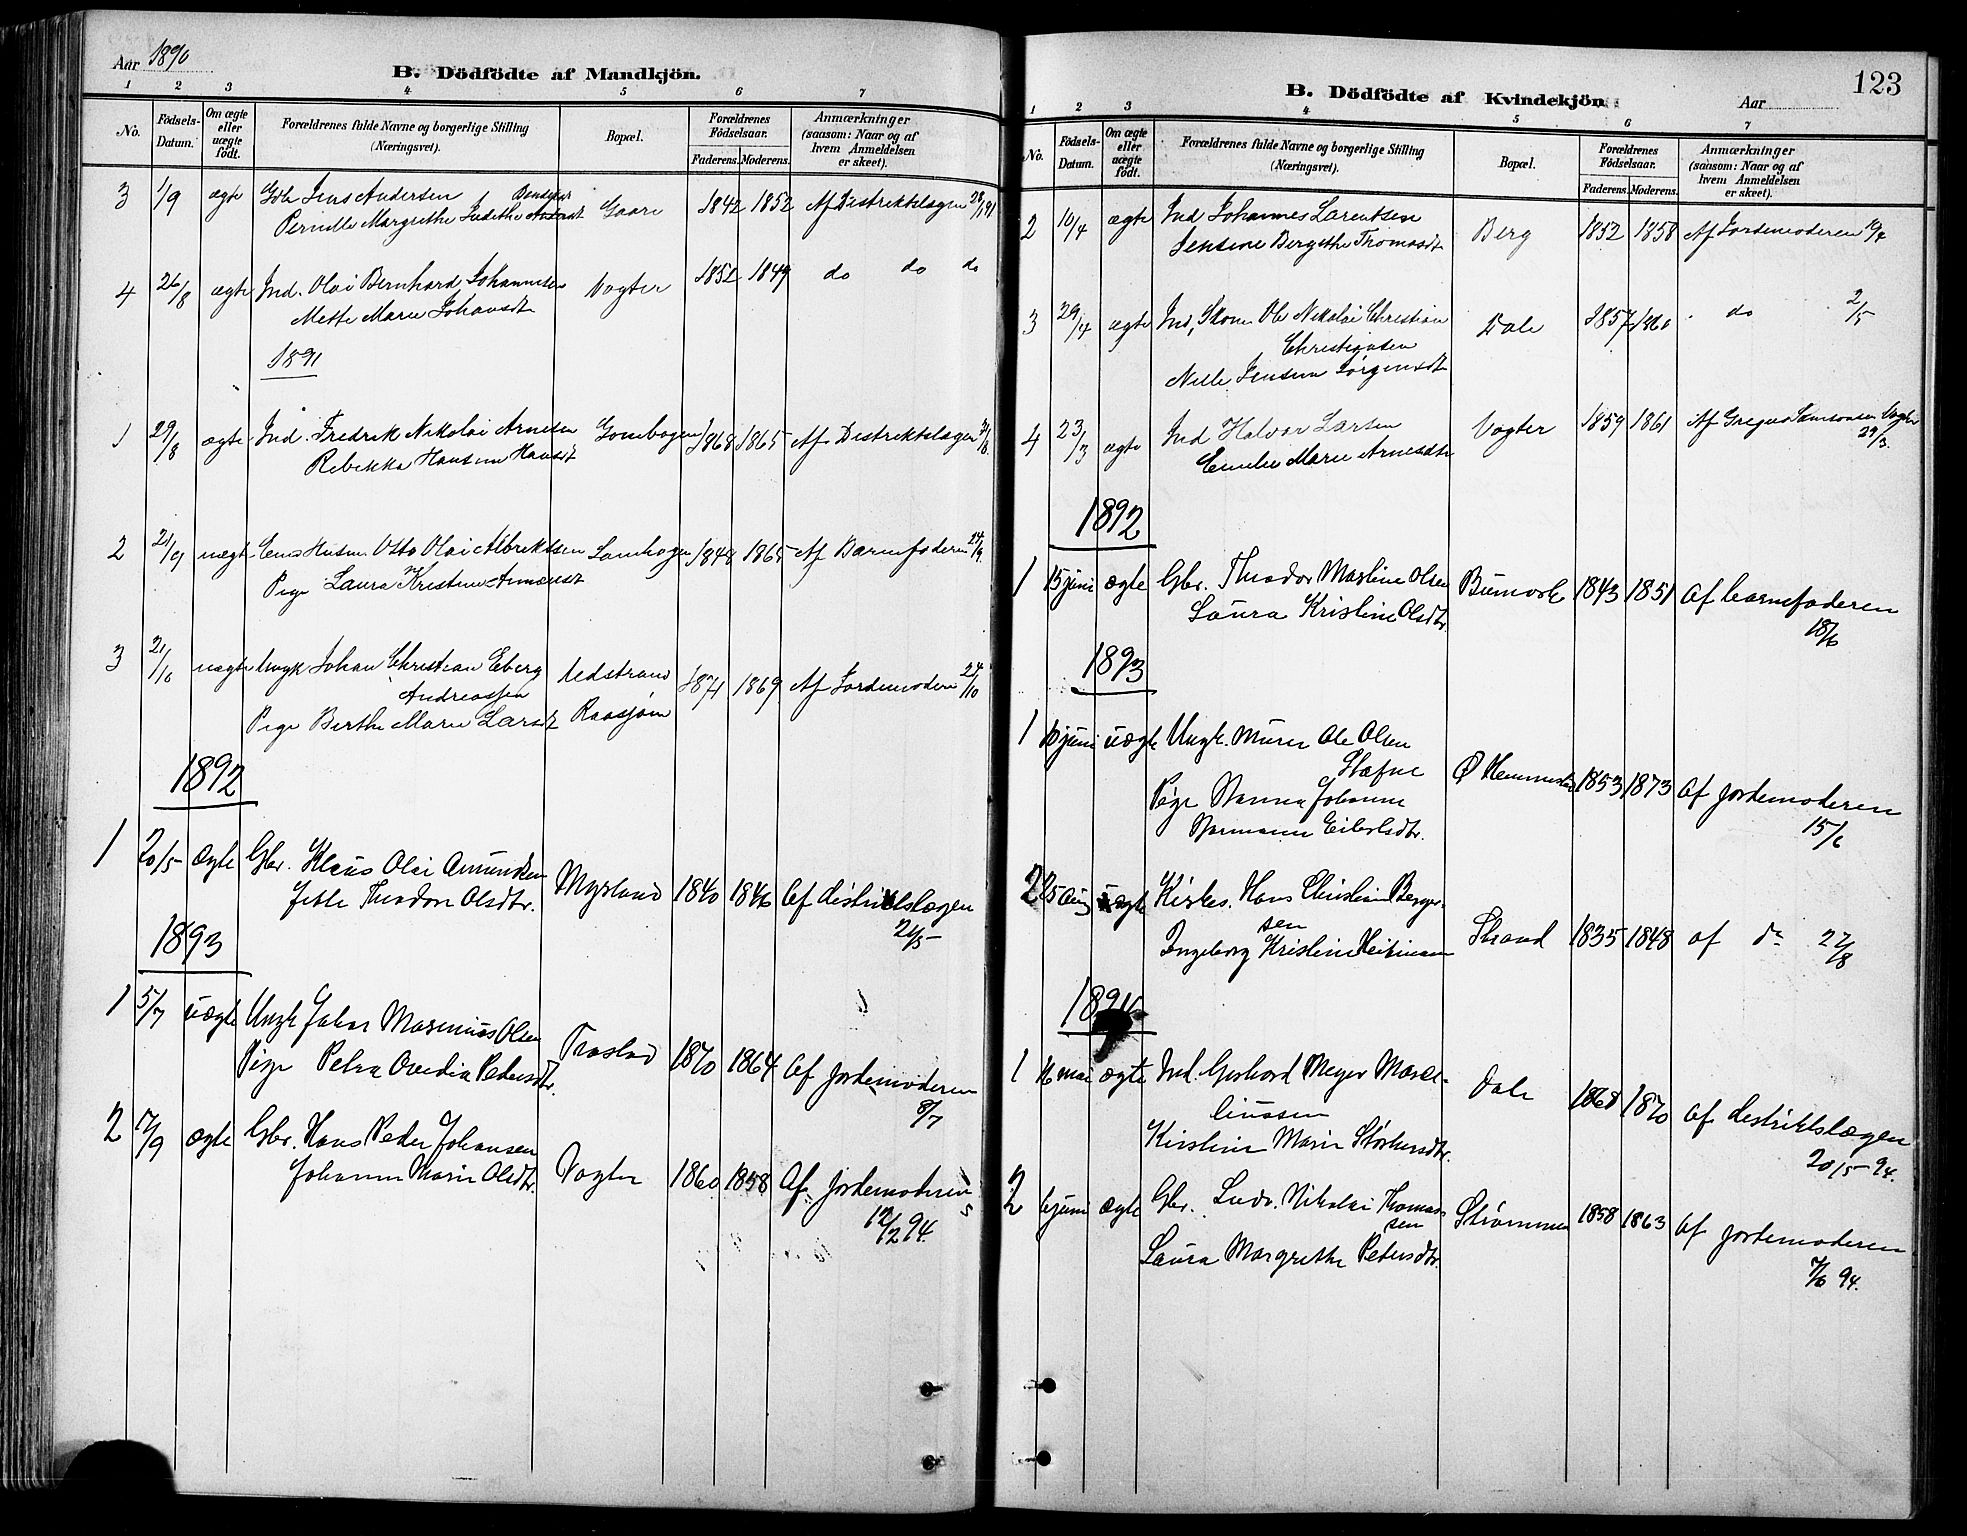 Aar 1890
B. Dödfödte af Mandkjön.
1 2 3 4 5 6 7
No. Fødsels-Datum. Om ægte eller uægte født. Forældrenes fulde Navne og borgerlige Stilling (Næringsvei). Bopæl. Forældrenes Fødselsaar. Faderens. Moderens. Anmærkninger (saasom: Naar og af hvem Anmeldelsen er skeet).
3 1/9 ægte Gbr Jens Andersen Gaare 1842 1852 Af Distriktslægen
Pernille Margrethe Judithe
4 26/8 ægte Ind. Olai Bernhard Johannesen Vogter 1852 1849 do do do
Mette Marie Johansdt
1891
1 29/8 ægte Ind. Fredrik Nikolai Arnesen 1868 1865 Af Distriktslægen
Rebekka Hansine Hansdt
2 21/9 uægte Otto Olai Albrektsen 1848 1865 Af Barnefaderen 24/9
Pige Laura Kristine
3 21/10 uægte Ungk Johan Christian Eberg 1871 1869 Af Jordemoderen 24/10
Andreassen
Pige Berthe Marie Larsdt
1892
1 20/5 ægte Gbr. Klaus Olai Amundsen Myrland 1840 1846 Af distriktslægen
Theodore Olsdtr. 21/5
1893
1 5/7 uægte Ungk Johan Marenius Olsen Traslad 1870 1864 Af jordemoderen
Pige Petra Ovedia Pedersdtr. 8/7
2 17/9 ægte Gbr. Hans Peder Johansen Vogter 1860 1858 Af jordemoderen
Johanne Marie Olsdtr. 12/2 94.
123
B. Dödfödte af Kvindekjön.
Aar
1 2 3 4 5 6 7
No. Fødsels-Datum. Om ægte eller uægte født. Forældrenes fulde Navne og borgerlige Stilling (Næringsvei). Bopæl. Forældrenes Fødselsaar. Faderens. Moderens. Anmærkninger (saasom: Naar og af hvem Anmeldelsen er skeet).
2 10/4 ægte Ind Johannes Larentsen Berg 1852 1858 Af Jordemoderen
Jensine Bergithe Thomasdt
3 29/4 ægte Ind, Skom Ole Nikolai Christian Dale 1857 1860 do 2/5
Christiansen
Jørgensdt
4 23/3 ægte Ind Halvor Larsen Vogter 1859 1861 Af Samsonsen Vogter
Emelie Marie Arnesdtr 29/3.
1892
1 15 juni ægte Gbr. Theodor Martin Olsen 1843 1851 Af barnefaderen
Laura Kristine Olsdtr. 18/6
1893
1 uægte Ungk. murer Ole Olsen Ø Hemmestad 1853 1873 Af jordemoderen
Stafne
Pige Johanne
Eilertsdtr. 15/6
2 25 aug ægte Kirkes. Hans Christian Berger- Strand 1835 1848 af do 27/8
sen
Ingeborg Kristine Heitmann
1894
1 16 mai ægte Ind. Gerhard Meyer Marse- Dale 1868 1870 Af distriktslægen
liussen
Kirstine Marie 20/5 94.
2 6 juni ægte Gbr. Ludv. Nikolai Thomas- Strømmen 1858 1863 Af jordemoderen
sen
Laura Margrethe Pedersdtr. 7/6 94.